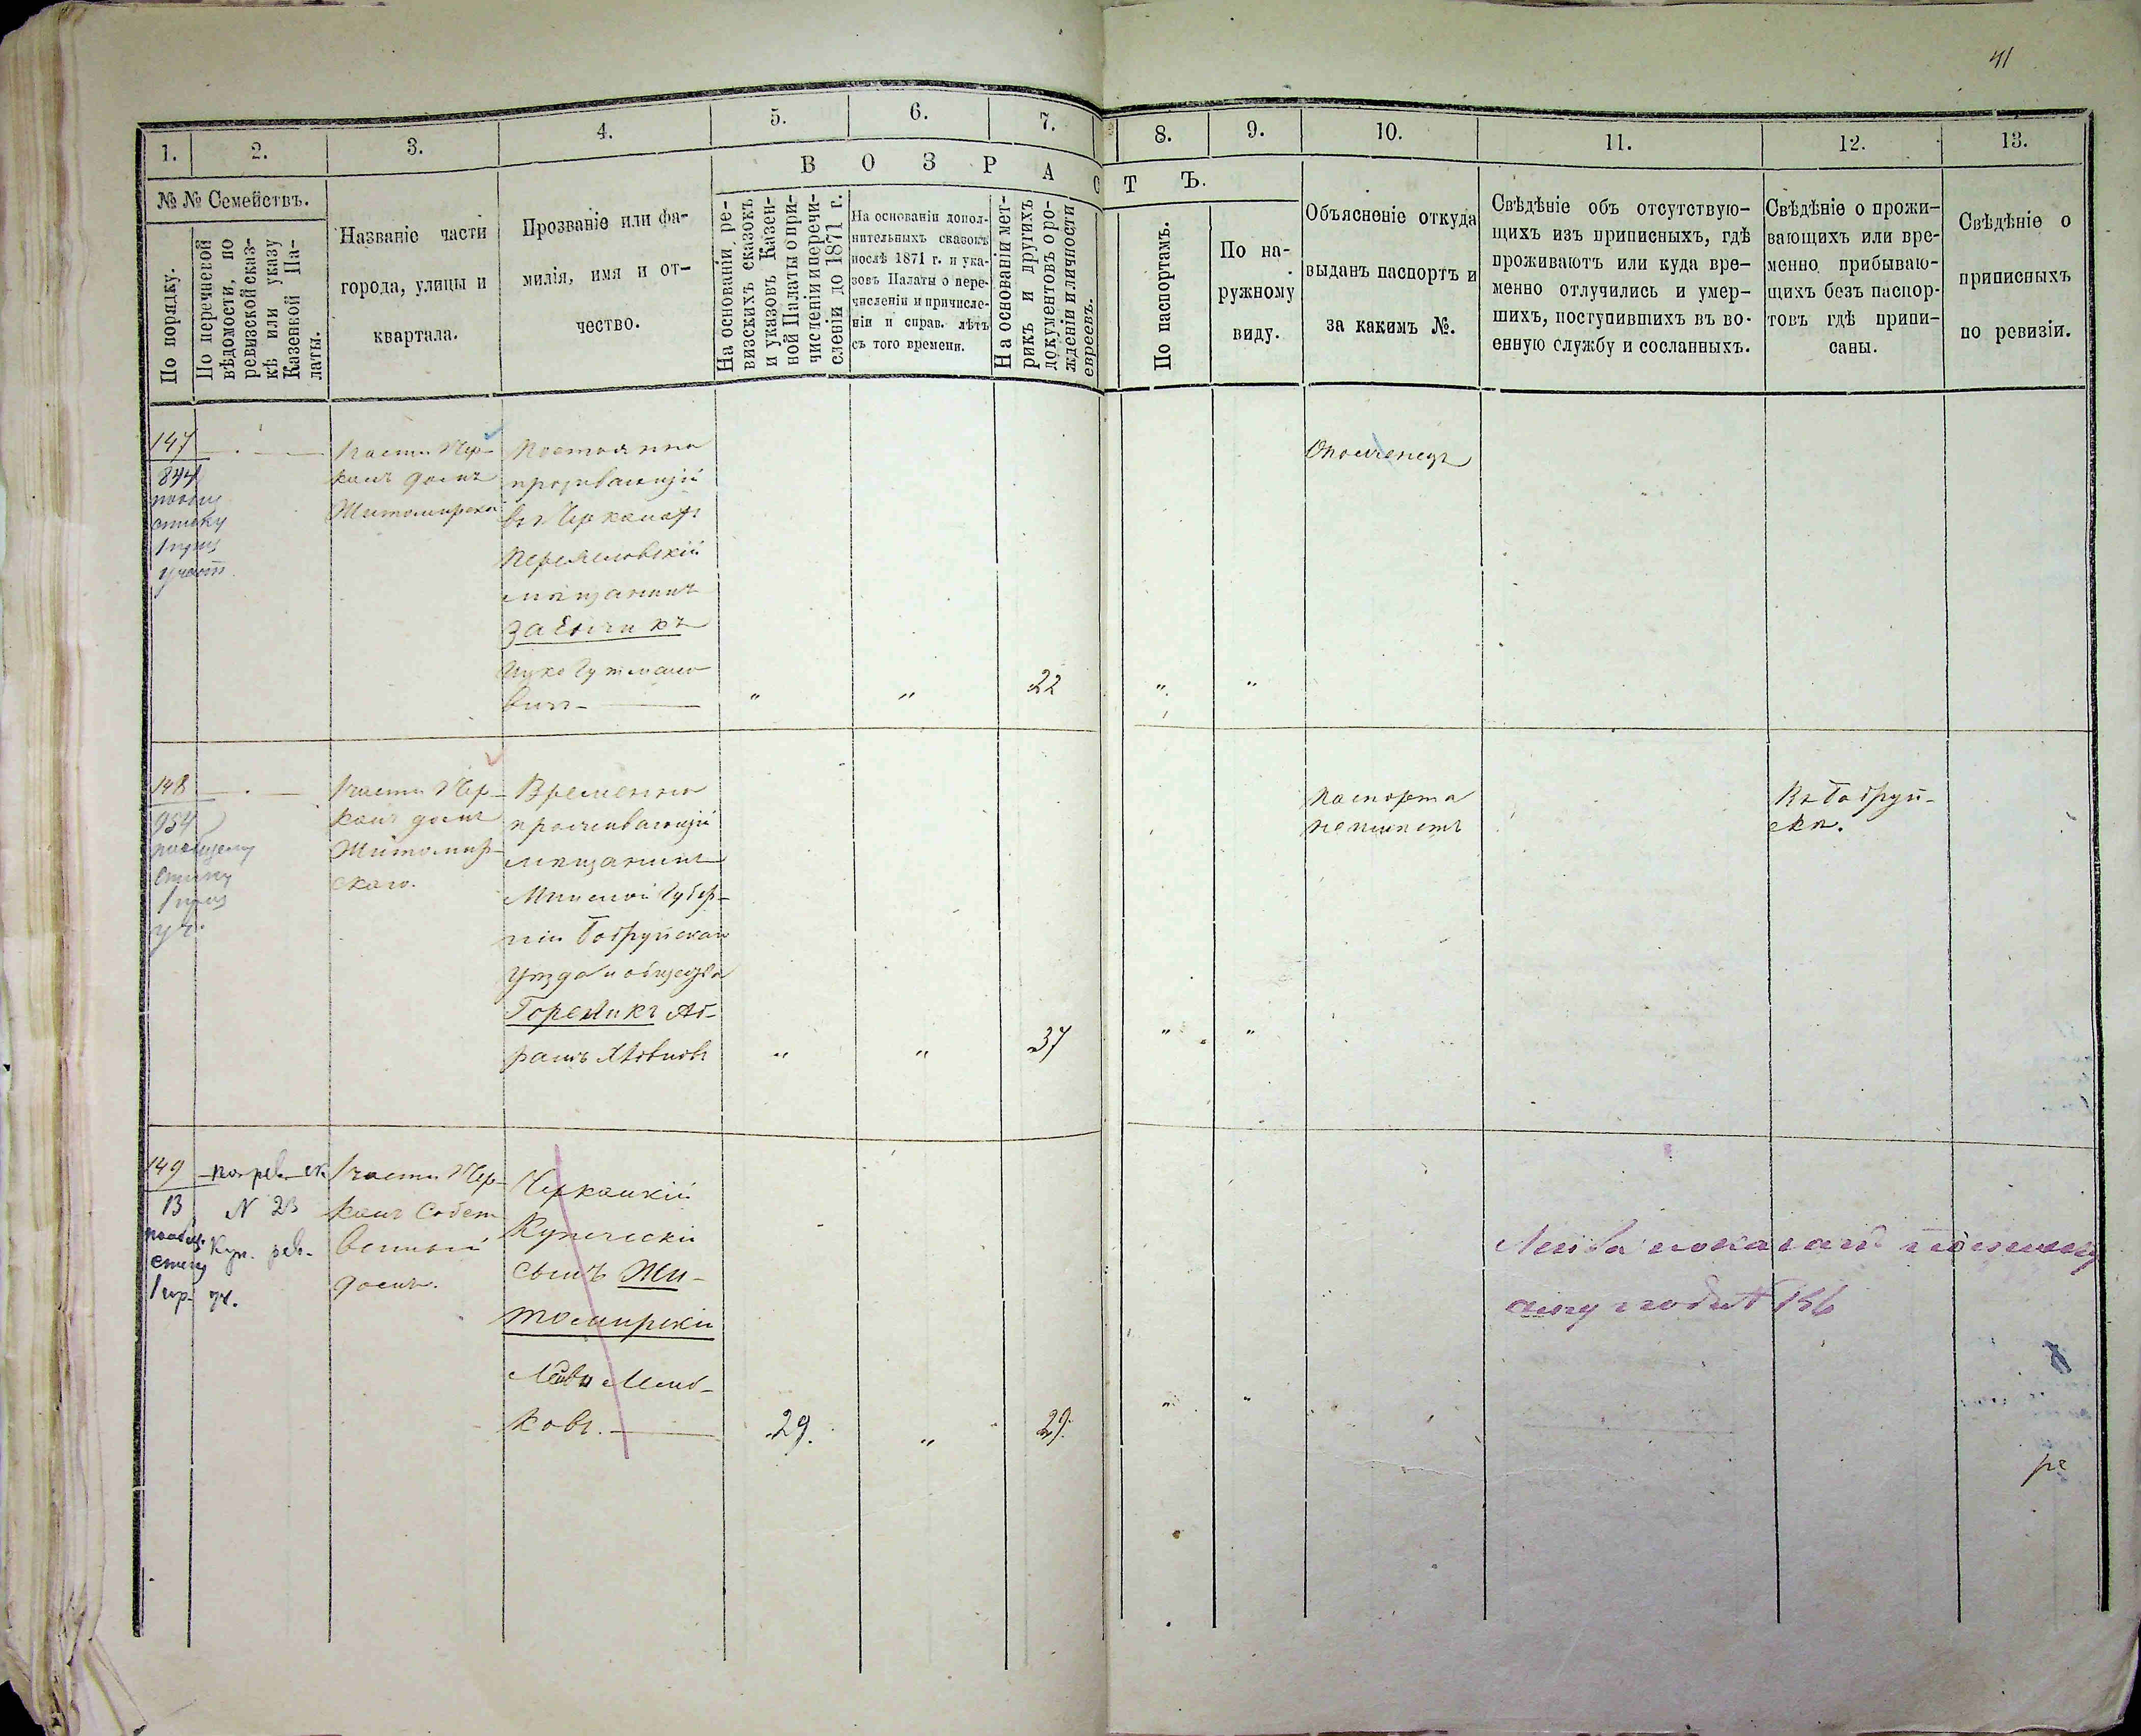 41
1. 2. 3. 4. 5. 6. 7. 8. 9. 10. 11. 12. 13.
В О З Р А С Т Ъ.
№ № Семействъ.
По порядку.
По перечневой
вѣдомости, по
ревизской сказ-
кѣ или указу
Казенной Па-
латы.
Названіе части
города, улицы и
квартала.
Прозваніе или фа-
милія, имя и от-
чество.
На основаніи ре-
визскихъ сказокъ
и указовъ Казен-
ной Палаты о при-
численіи и перечи-
сленіи до 1871 г.
На основаніи допол-
нительныхъ сказокъ
послѣ 1871 г. и ука-
зовъ Палаты о пере-
численіи и причисле-
ніи и справ. лѣтъ
съ того времени.
На основаніи мет-
рикъ и другихъ
документовъ о ро-
жденіи и личности
евреевъ.
По паспортамъ.
По на-
ружному
виду.
Объясненіе откуда
выданъ паспортъ и
за какимъ №.
Свѣдѣніе объ отсутствую-
щихъ изъ приписныхъ, гдѣ
проживаютъ или куда вре-
менно отлучились и умер-
шихъ, поступившихъ въ во-
енную службу и сосланныхъ.
Свѣдѣніе о прожи-
вающихъ или вре-
менно прибываю-
щихъ безъ паспор-
товъ гдѣ припи-
саны.
Свѣдѣніе о
приписныхъ
по ревизіи.
147
844
списку
1 части Чер-
касъ домъ
Житомирска
Постоянно
проживающій
въ Черкасахъ
Переяславскій
мѣщанинъ
Заѣзчикъ
Гутмано
вичъ
" " 22 " "
Ополченецъ
148
954
уч.
1 части Чер-
касъ домъ
Житомир-
скаго.
Временно
проживающій
мѣщанинъ
Минской Губер-
ніи Бобруйскаго
Уѣзда и общества
Гореликъ Аб-
рамъ
" " 37 " "
Паспорта
неимѣетъ
Въ Бобруй-
скѣ.
149
13
1 пр. уч.
по рев. ск.
N 23
Куп. рев.
1 части Чер-
касъ Собст
венный
домъ.
Черкаскій
Купеческій
сынъ Жи-
томирскій
Лейба
ковъ.
29. " 29. " "
Лейба показанъ